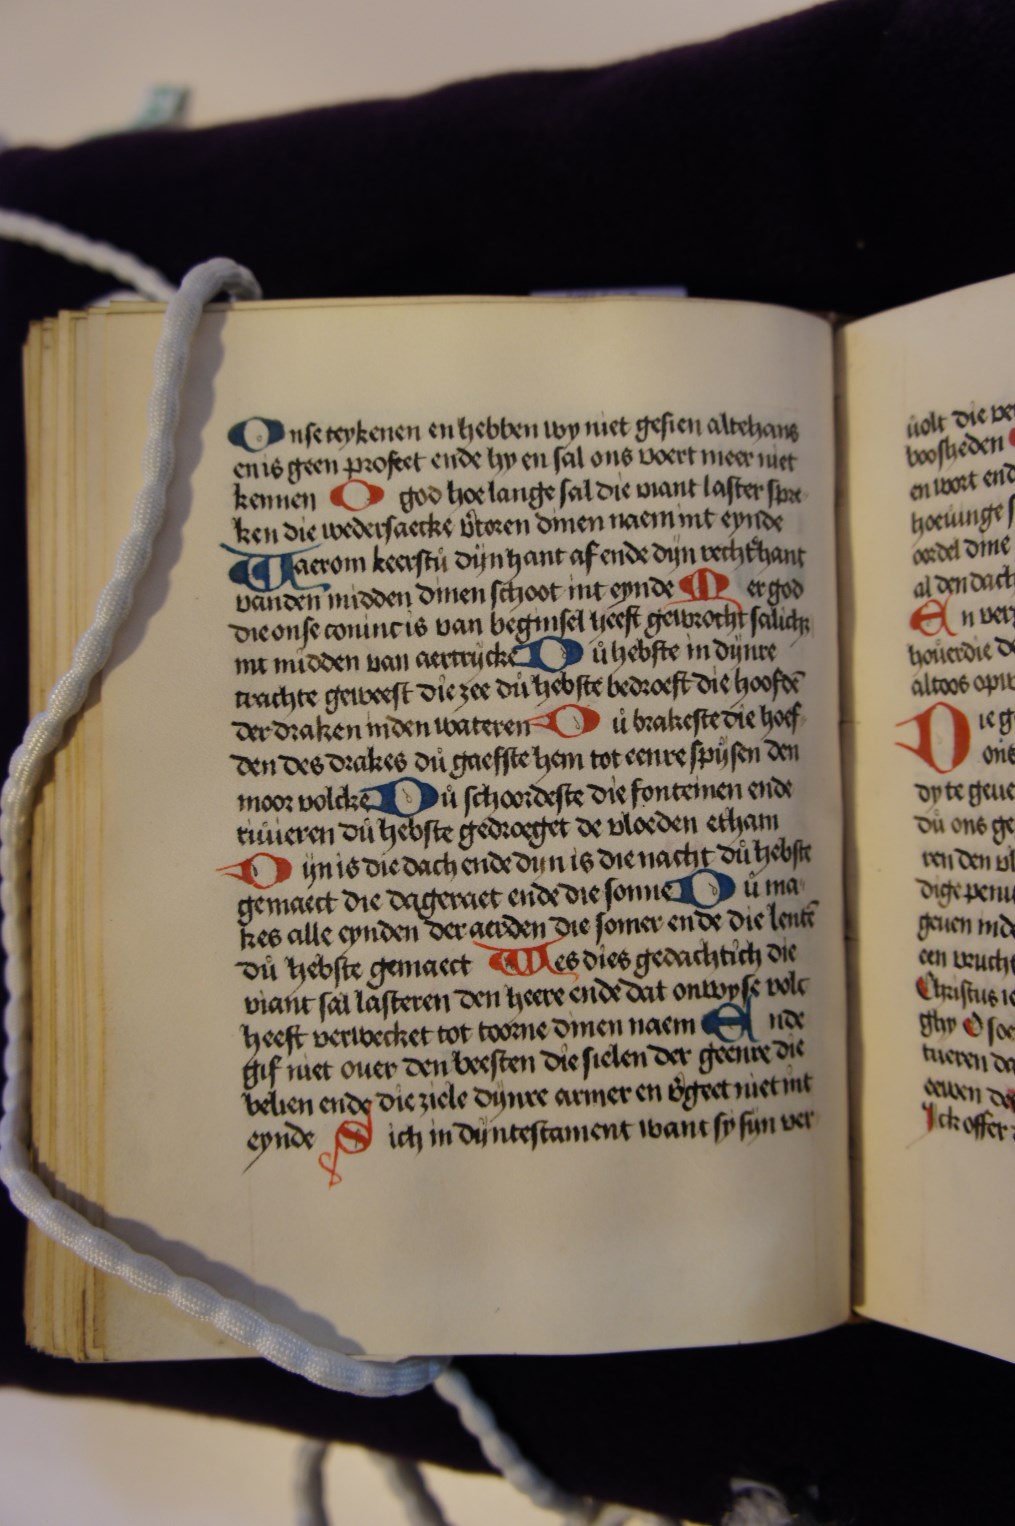 Onse teykenen en hebben wy niet gesien altehans
en is geen profeet ende hy en sal ons voert meer niet
kennen O god hoe lange sal die viant laster spre
ken die wedersaecke v̄toren dinen naem int eynde
Waerom keerstu dijn hant af ende dijn rechthant
van den midden dinen schoot int eynde Mer god
die onse coninc is van beginsel heeft gewrocht salich
int midden van aertrycke Du hebste in dijnre
crachte geweest die zee du hebste bedroeft die hoofdē
der draken in den wateren Du brakeste die hoef
den des drakes du gaefste hem tot eenre spijsen den
moor volcke Du schoordeste die fonteinen ende
riuieren du hebste gedroeget de vloeden etham
Dijn is die dach ende dijn is die nacht du hebste
gemaect die dageraet ende die sonne Du ma
kes alle eynden der aerden die somer ende die lentē
du hebste gemaect Wes dies gedachtich die
viant sal lasteren den heere ende dat onwyse volc
heeft verwecket tot toorne dinen naem Ende
gif niet ouer den beesten die sielen der geenre die
belien ende die ziele dijnre armer en v̄geet niet int
eynde Sich in dijn testament want sy sijn ver
uolt die
boosheden
en wort ende
hoeuinge
oordel dine
al den dach
En
houerdie
altoos
Die
ons
dy te geue
du ons ge
ren den
dige
geuen
een vrucht
Christus
ghy O
tueren
eewen
Ick offer